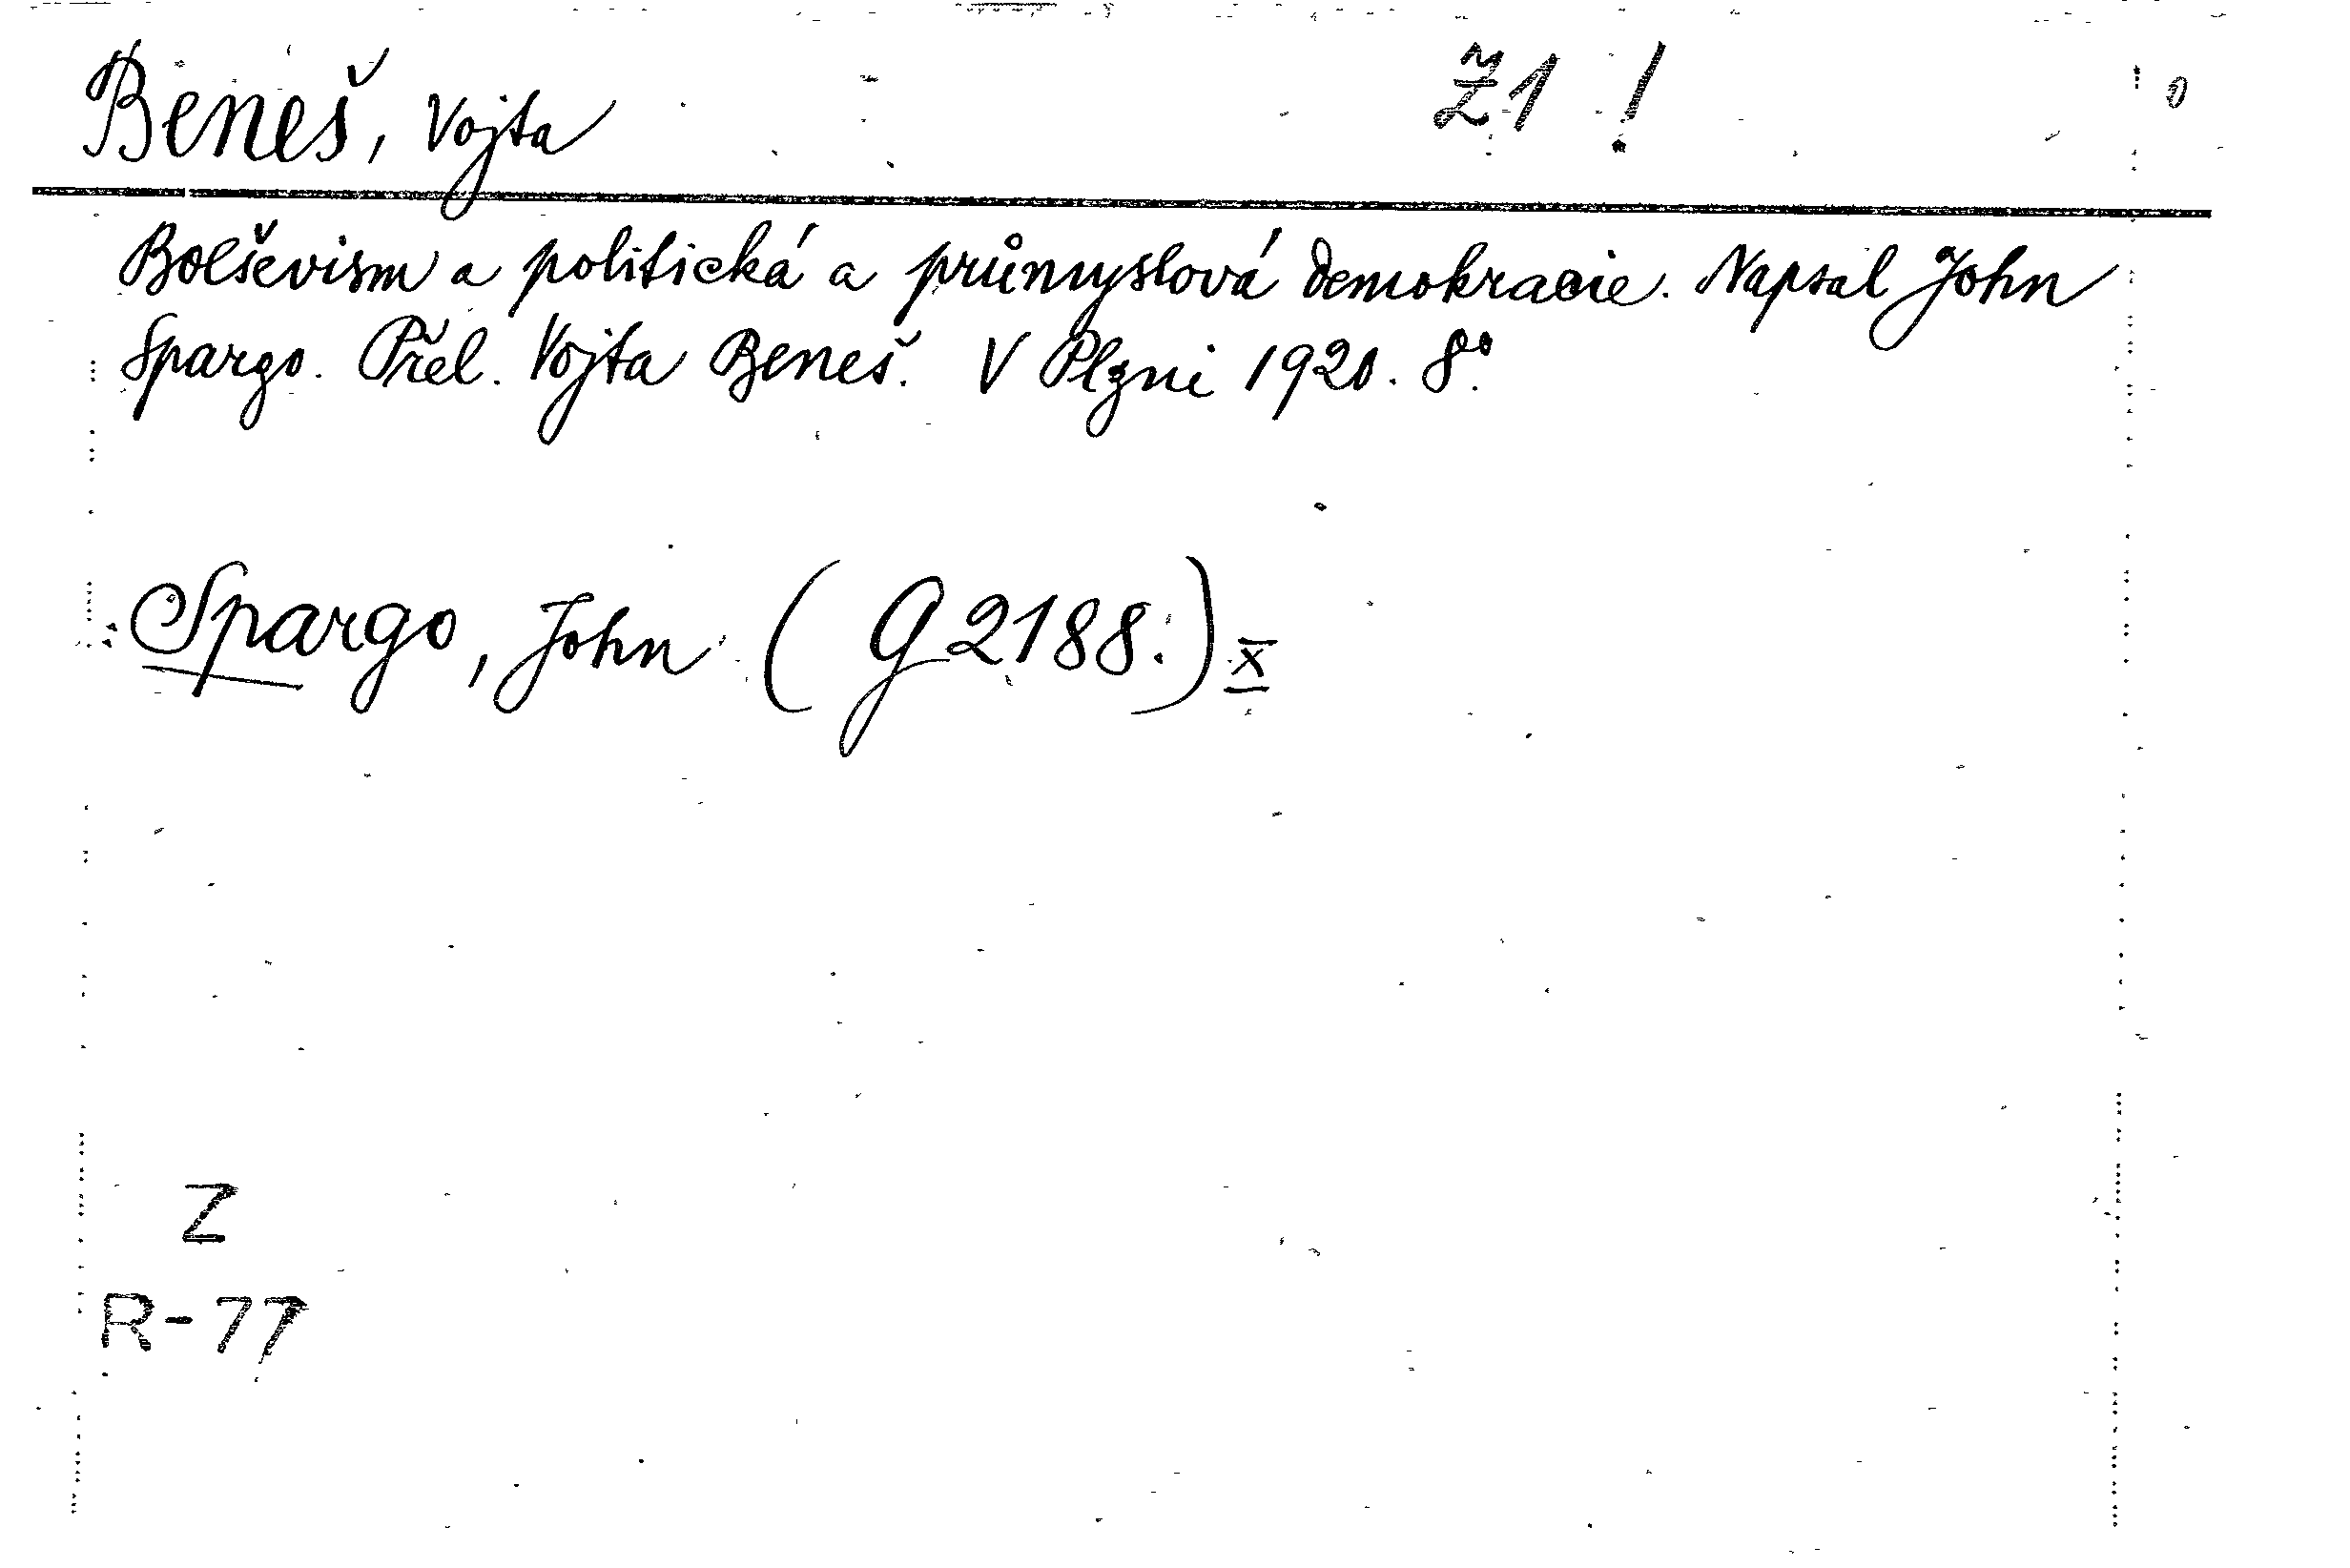 Beneš, Vojta Ž1 !
Bolševism a politická a průmyslová demokracie. Napsal John
Spargo. Přel. Vojta Beneš. V Plzni 1920. 8°.
Spargo, John (G 2188.) x
Z
R-77